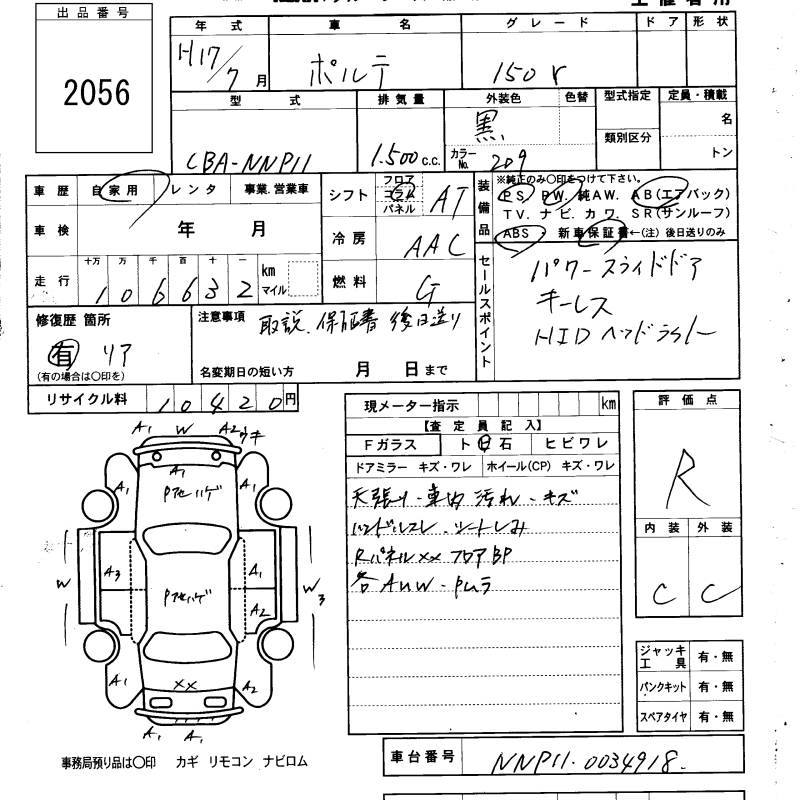 出品番号
2056
年式 車名 グレード ドア 形状
H17/7月 ポルテ 150r
型式 排気量 外装色 色替 型式指定 定員・積載
類別区分 名 トン
CBA-NNP11 1.500c.c. 黒 カラーNo. 209
車歴 自家用 レンタ 事業.営業車
シフト フロア コラム パネル AT
装備品 ※純正のみ○印をつけて下さい。
PS PW. 純AW. AB(エアバック)
TV. ナビ. カワ. SR(サンルーフ)
ABS ・ 新車保証書←(注)後日送りのみ
車検 年 月
冷房 AAC
走行 十万 万 千 百 十 一 km マイル
106632
燃料 G
セールスポイント
パワースライドドア
キーレス
HIDヘッドライト
修復歴 箇所
有 リア
(有の場合は○印を)
注意事項 取説.保証書 後日送り
名変期日の短い方 月 日まで
リサイクル料 10420円
現メーター指示 km
【査定員記入】
Fガラス ト 石 ヒビワレ
ドアミラー キズ・ワレ ホイール(CP) キズ・ワレ
天張り・車内 汚れ・キズ
ハンドルスレ.シートしみ
Rパネルxx フロアBP
各AUW・Pムラ
評価点
R
内装 外装
C C
A1 W A2 ウキ
A1 A1 A1
Pアセハゲ
W A3 A1 W3
Pアセハゲ
A2
A1 XX A2
A1 A1
ジャッキ工具 有・無
パンクキット 有・無
スペアタイヤ 有・無
事務局預り品は○印 カギ リモコン ナビロム
車台番号 NNP11-0034918.